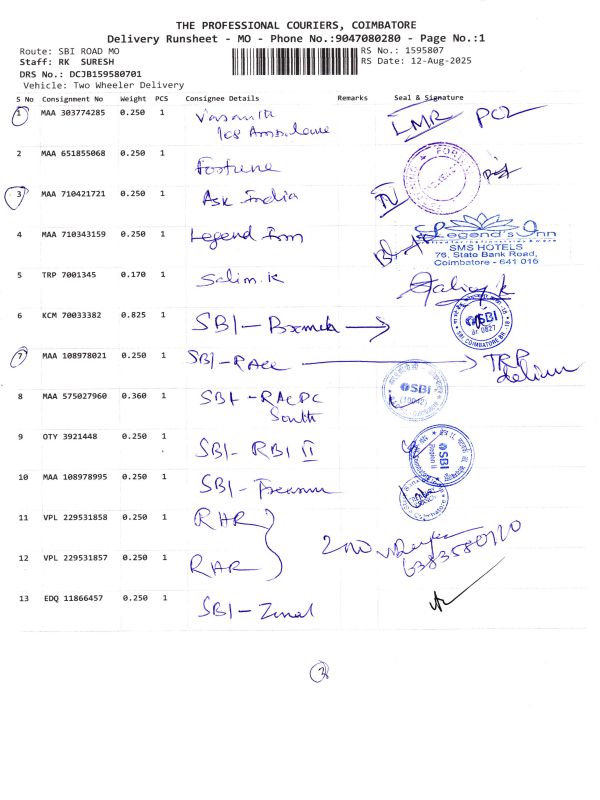 THE PROFESSIONAL COURIERS, COIMBATORE
Delivery Runsheet - MO - Phone No.:9047080280 - Page No.:1
Route: SBI ROAD MO RS No.: 1595807
Staff: RK SURESH RS Date: 12-Aug-2025
DRS No.: DCJB159580701
Vehicle: Two Wheeler Delivery
S No Consignment No Weight PCS Consignee Details Remarks Seal & Signature
1 MAA 303774285 0.250 1 Vasanth
Ice
2 MAA 651855068 0.250 1 Fortune
3 MAA 710421721 0.250 1 Ask India
4 MAA 710343159 0.250 1 Legend Inn Legend's Inn
SMS HOTELS
76, State Bank Road,
Coimbatore - 641 016
5 TRP 7001345 0.170 1 Salim.K
6 KCM 70033382 0.825 1 SBI - SBI
7 MAA 108978021 0.250 1 SBI - TRP
8 MAA 575027960 0.360 1 SBI - RACPC SBI
South
9 OTY 3921448 0.250 1 SBI - RBI II SBI
10 MAA 108978995 0.250 1 SBI -
11 VPL 229531858 0.250 1 RHR
12 VPL 229531857 0.250 1 RHR 6383580720
13 EDQ 11866457 0.250 1 SBI - Zonal